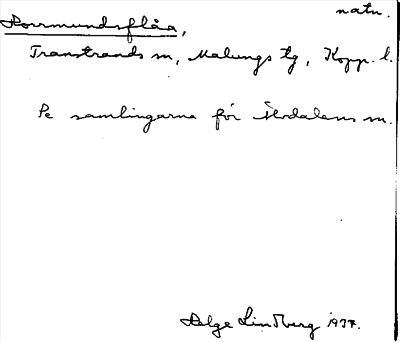 natn.
Dorrmundsflåa,
Transtrands sn, Malungs tg, Kopp. l.
Se samlingarna för Älvdalens sn.
Helge Lindberg 1937.